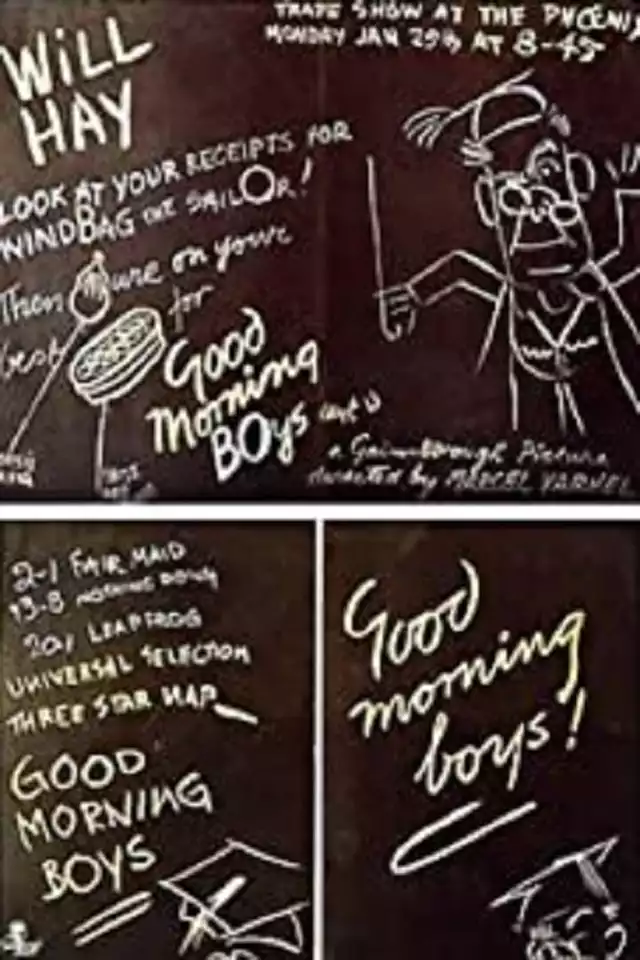 WiLL
HAY
TRADE SHOW AT THE PHOENIX
MONDAY JAN 25th AT 8-45
LOOK AT YOUR RECEIPTS FOR
WINDBAG THE SAILOR!
Then ure on your
best for
Good
Morning
BOys
a Gainsborough Picture
directed by MARCEL VARNEL
2-1 FAIR MAID
NOTHING DOWN
LEAPFROG
UNIVERSAL SELECTION
THREE STAR NAP
GOOD
MORNING
BOYS
Good
morning
boys!